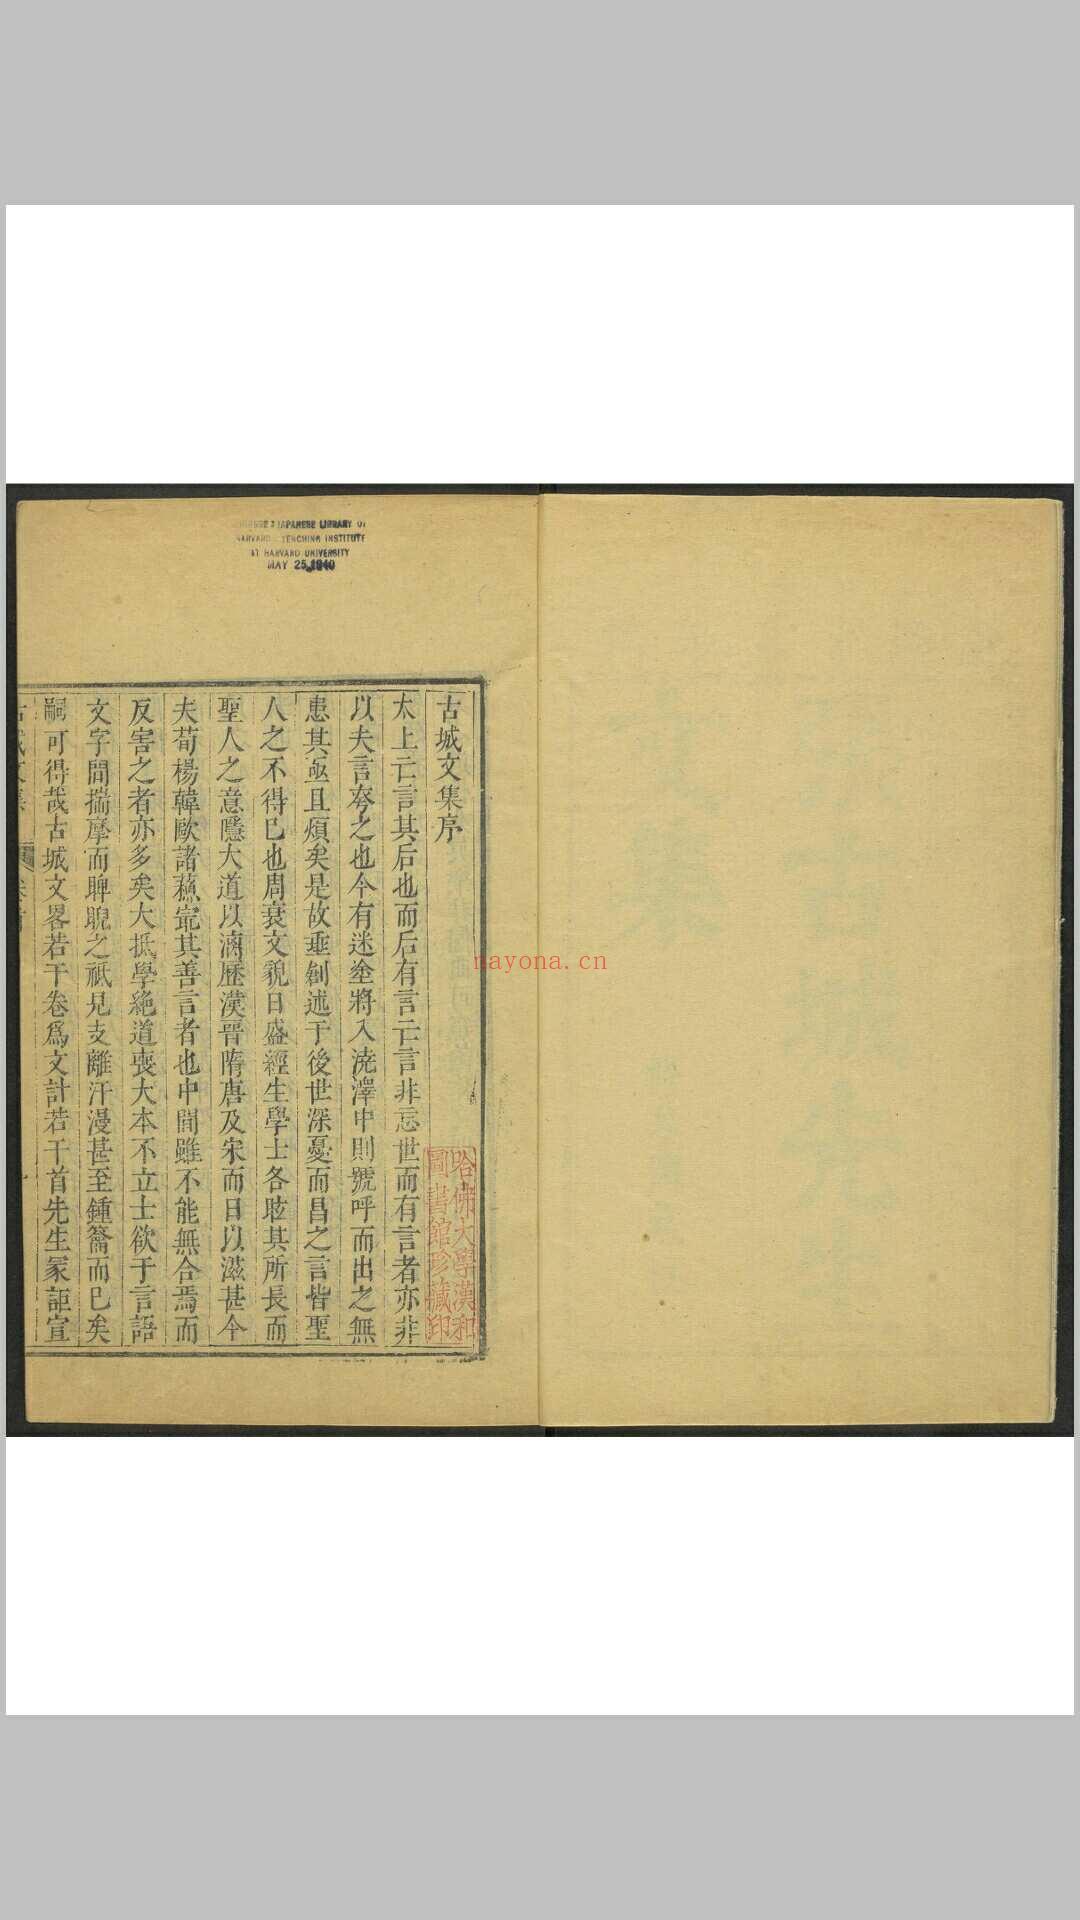 CHINESE-JAPANESE LIBRARY OF
HARVARD-YENCHING INSTITUTE
AT HARVARD UNIVERSITY
MAY 25 1940
古城文集序
太上亡言其后也而后有言亡言非忘世而有言者亦非
以夫言夸之也今有迷塗將入澆澤中則號呼而出之無
患其亟且煩矣是故垂創述于後世深憂而昌之言皆聖
人之不得已也周衰文貌日盛經生學士各眩其所長而
聖人之意隱大道以漓歷漢晉隋唐及宋而日以滋甚今
夫荀楊韓歐諸蘓寔其善言者也中間雖不能無合焉而
反害之者亦多矣大抵學絶道喪大本不立士欲于言語
文字間揣摩而睥睨之祇見支離汗漫甚至鍾籥而已矣
嗣可得哉古城文畧若干卷爲文計若干首先生冢詎宣
哈佛大學漢和
圖書館珍藏印
nayona.cn